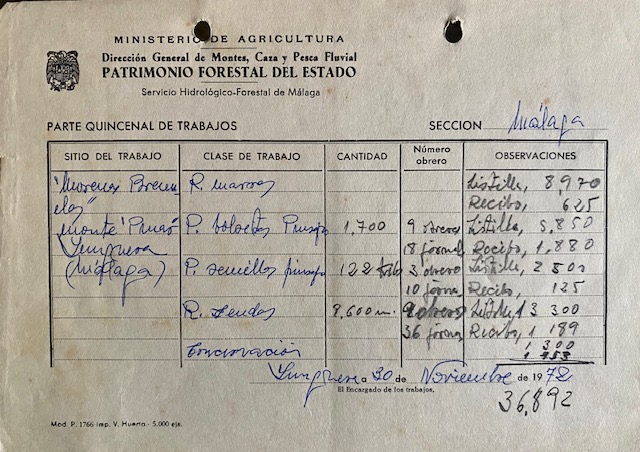 MINISTERIO DE AGRICULTURA
Dirección General de Montes, Caza y Pesca Fluvial
PATRIMONIO FORESTAL DEL ESTADO
Servicio Hidrológico-Forestal de Málaga
PARTE QUINCENAL DE TRABAJOS SECCION Málaga
SITIO DEL TRABAJO CLASE DE TRABAJO CANTIDAD Número obrero OBSERVACIONES
R. Listilla, 8,970
Recibo, 625
monte P. 1,700 9 obreros Listilla, 5,850
18 Recibo, 1,880
(Málaga) P. semillas pinsapo 122 3 obrero Listilla, 2 800
10 Recibo, 125
R. sendas 9 obreros 3 300
36 Recibo, 1 189
Conservación 1 300
a 30 de Noviembre de 1972
El Encargado de los trabajos,
36,892
Mod. P. 1766-Imp. V. Huerta.-5.000 eje.